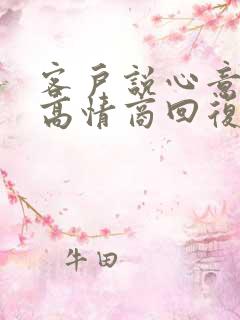 客戶說心意
高情商回復
牛田